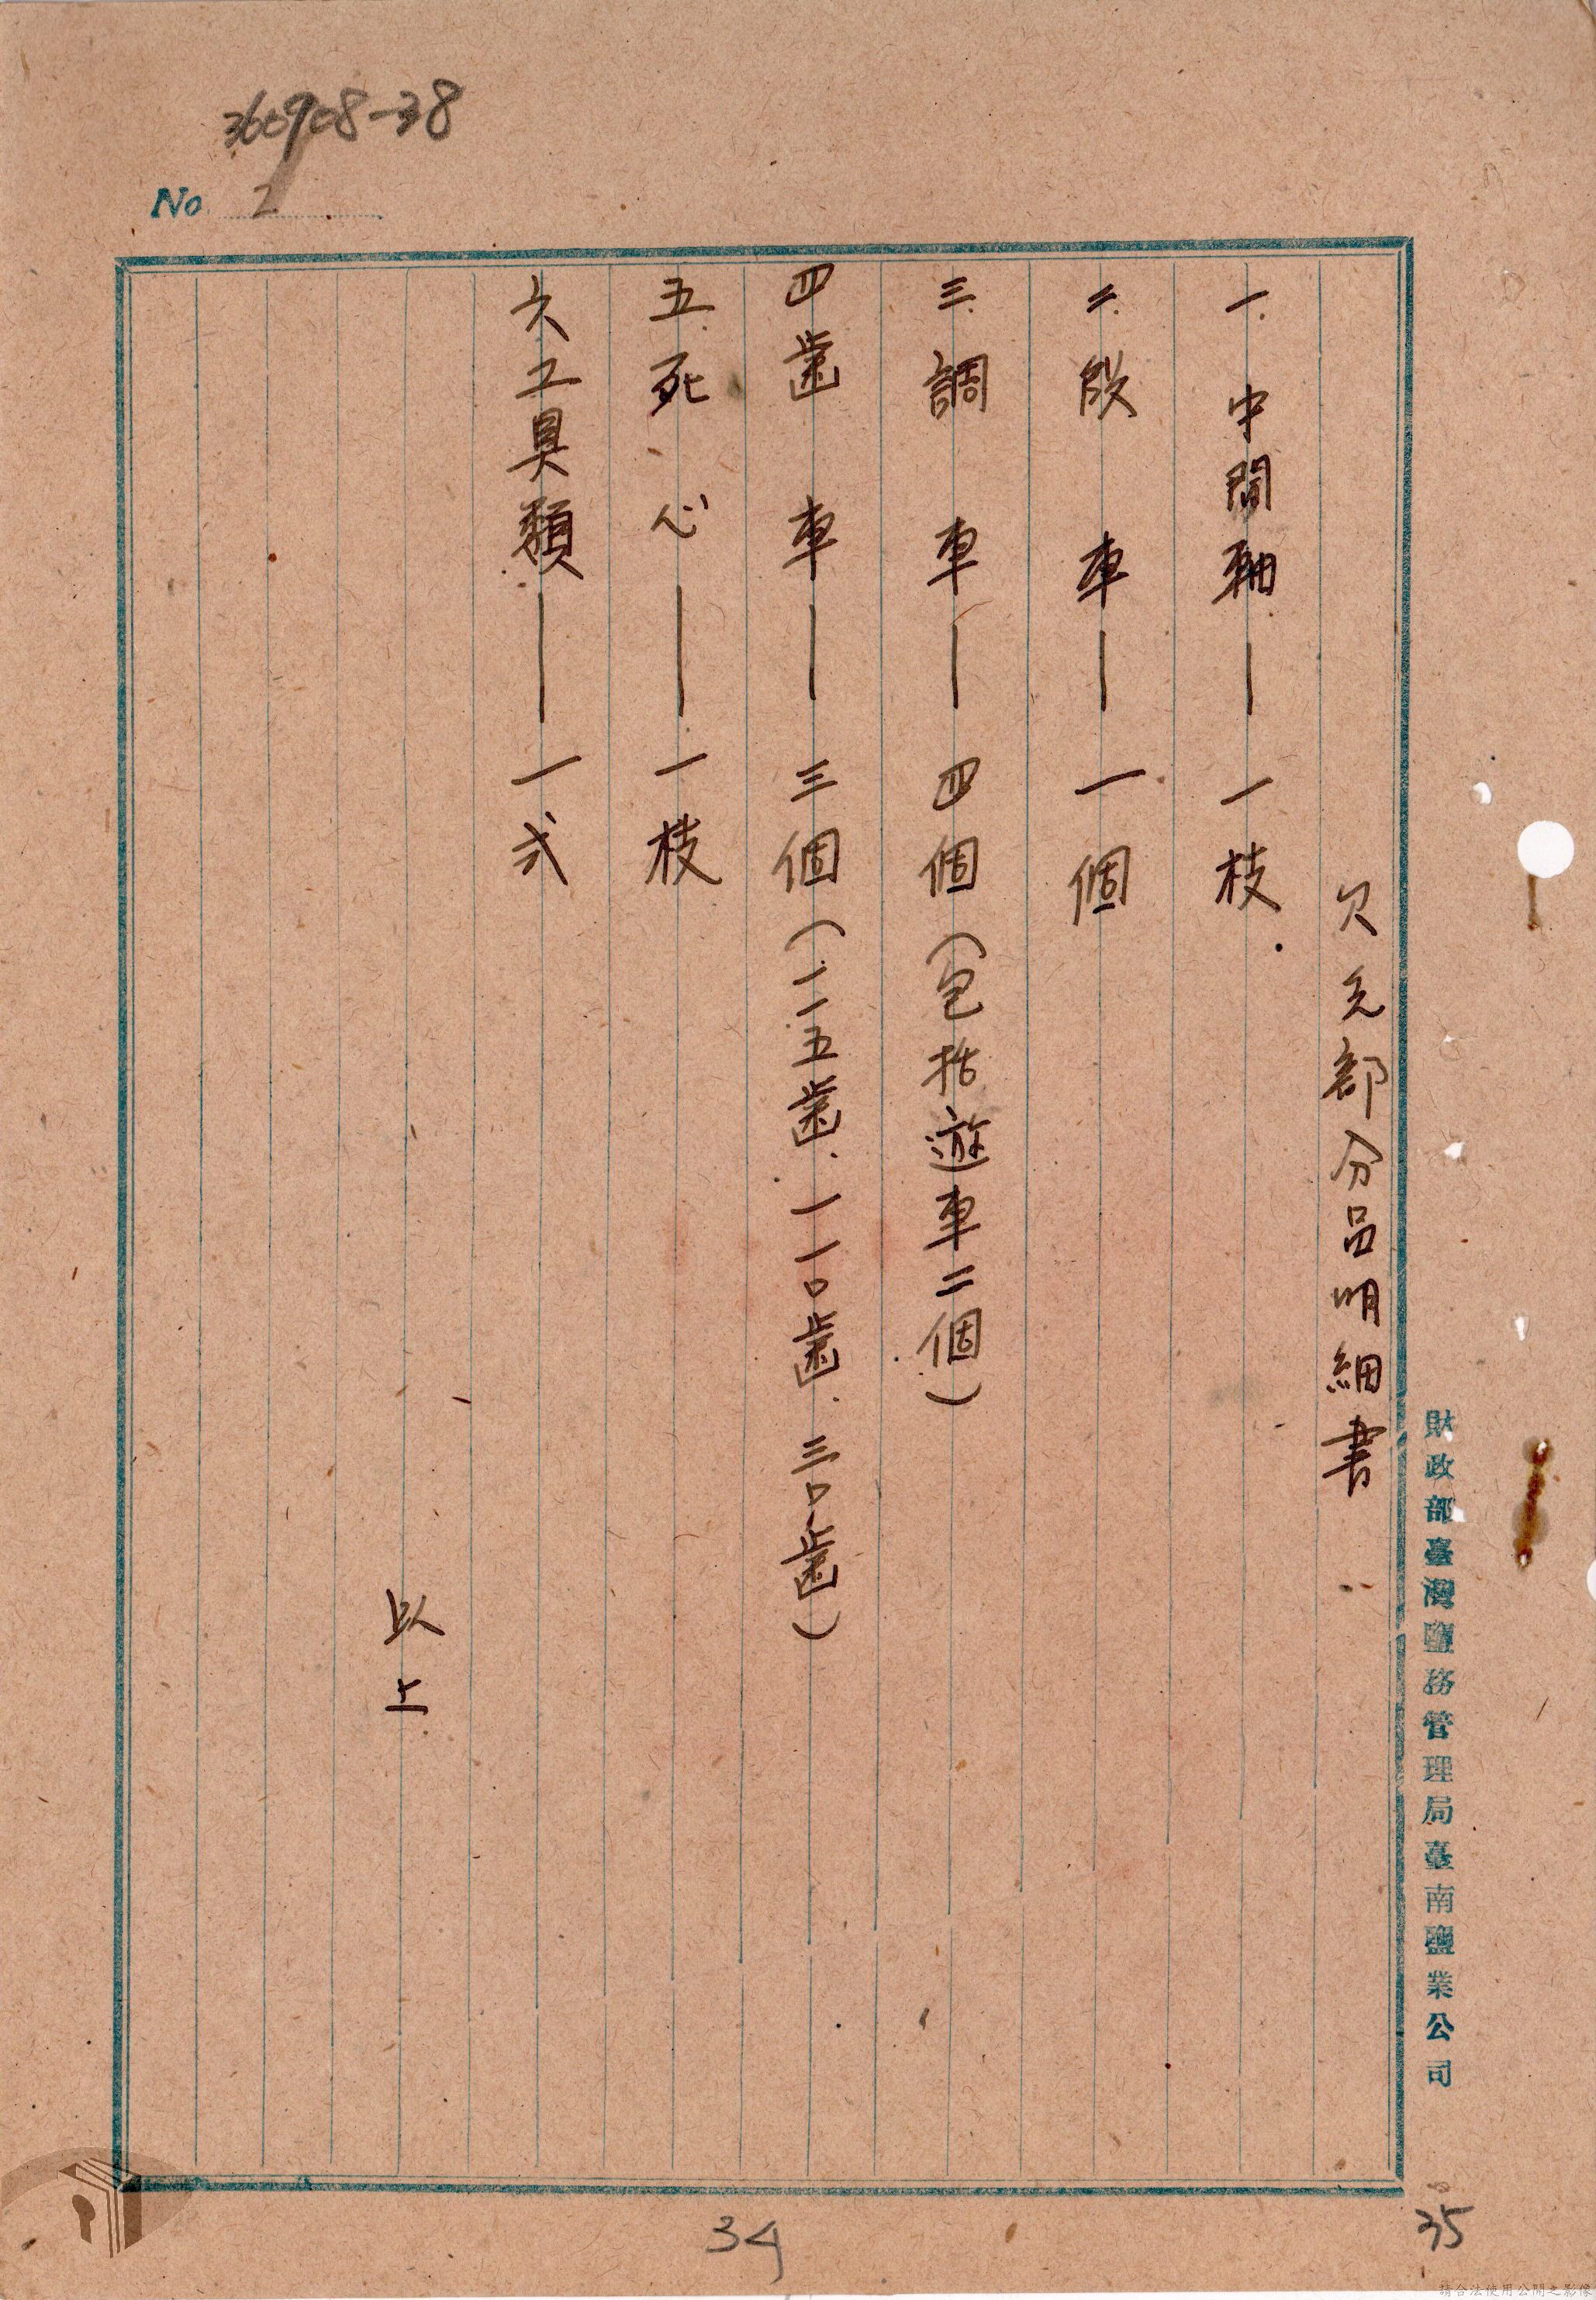 360908-38
No 2
欠乏部分品明細書
一. 中間軸—一枝.
二. 段車—一個
三. 調車—四個(包括遊車二個)
四 齒車—三個(一二五齒.一一〇齒.三〇齒)
五. 死心—一枝
六 工具類—一式
以上
財政部臺灣鹽務管理局臺南鹽業公司
34
35
請合法使用公開之影像